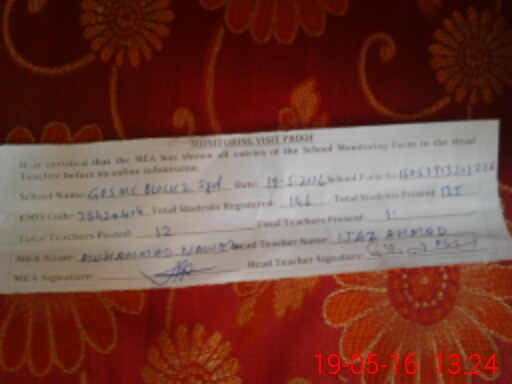 MONITORING VISIT PROOF
It is certified that the MEA has shown all entries of the School Monitoring Form to the Head
Teacher before its online submission.
School Name: GPS MC BLOCK 2 Sgd Date: 19-5-2016 School Form No
EMIS Code: Total Students Registered: 146 Total Students Present: 135
Total Teachers Posted: 12 Total Teachers Present: 11
MEA Name: MUHAMMAD NAWAZ Head Teacher Name: IJAZ AHMAD
MEA Signature: Head Teacher Signature:
19-05-16 13:24